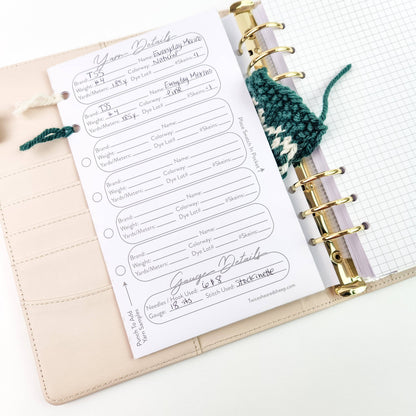 Yarn Details
Brand: TSS Name: Everyday Merino
Weight: #4 Colorway: Natural
Yards/Meters: 185y Dye Lot#: #Skeins: <1
Brand: TSS Name: Everyday Merino
Weight: #4 Colorway: Pine
Yards/Meters: 185y Dye Lot#: #Skeins: <1
Brand: Name:
Weight: Colorway:
Yards/Meters: Dye Lot#: #Skeins:
Brand: Name:
Weight: Colorway:
Yards/Meters: Dye Lot#: #Skeins:
Brand: Name:
Weight: Colorway:
Yards/Meters: Dye Lot#: #Skeins:
Brand: Name:
Weight: Colorway:
Yards/Meters: Dye Lot#: #Skeins:
Place Swatch In Pocket
Gauge Details
Needles / Hook Used: 6 & 8 Stitch Used: Stockinette
Gauge: 18 sts
Punch To Add
Yarn Samples
Twiceshearedsheep.com